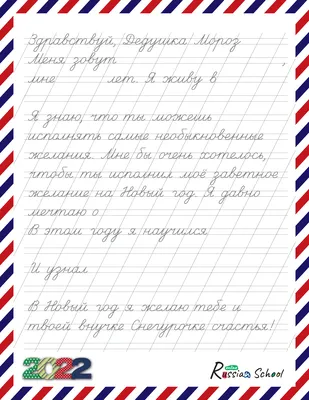 Здравствуй, Дедушка Мороз
Меня зовут ,
мне лет. Я живу в
Я знаю, что ты можешь
исполнять самые необыкновенные
желания. Мне бы очень хотелось,
чтобы ты исполнил моё заветное
желание на Новый год. Я давно
мечтаю о
В этом году я научился
И узнал
В Новый год я желаю тебе и
твоей внучке Снегурочке счастья!
2022
Russian School